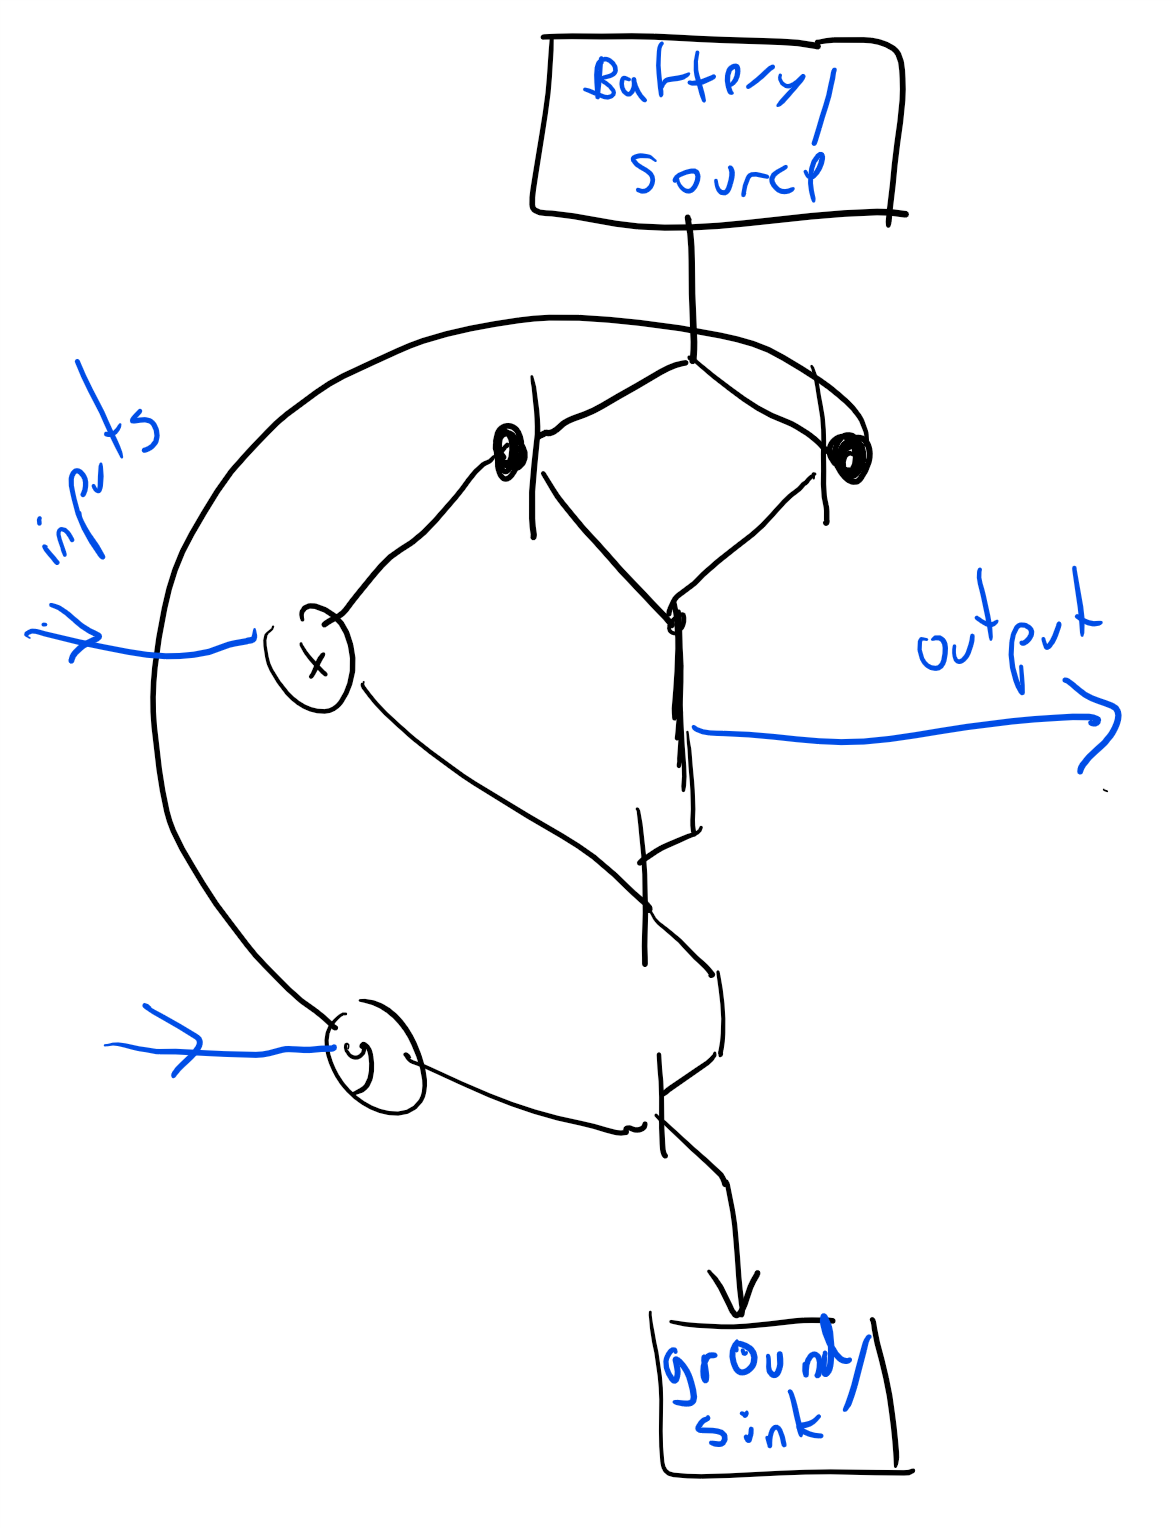 Battery/
source
inputs
x
output
y
ground/
sink